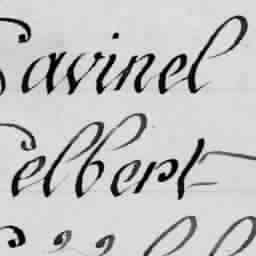 Savinel
Selbert